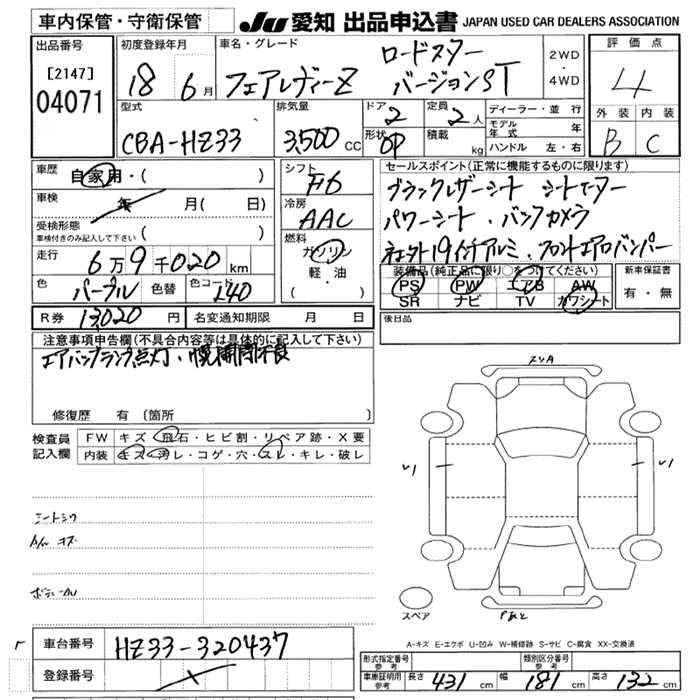 車内保管・守衛保管
JU 愛知 出品申込書 JAPAN USED CAR DEALERS ASSOCIATION
出品番号
[2147]
04071
初度登録年月
18 6月
車名・グレード
ロードスター
フェアレディーZ バージョンST
2WD
・
4WD
評価点
4
外装 内装
B C
型式
CBA-HZ33
排気量
3,500 CC
ドア 2
形状 OP
定員 2人
積載 kg
ディーラー・並行
モデル年式 年
ハンドル 左・右
車歴 自家用・( )
車検 年 月( 日)
受検形態
車検付きのみ記入して下さい ( )
走行 6万9千020km
色 パープル 色替 色コード L40
R券 13,020円 名変通知期限 月 日
シフト F6
冷房 AAC
燃料
ガソリン
軽・油
・( )
セールスポイント(正常に機能するものに限ります)
ブラックレザーシート シートヒーター
パワーシート・バックカメラ
19インチアルミ・フロントエアロバンパー
装備品(純正品に限り○をつけてください)
PS PW エアB AW
SR ナビ TV カワシート
新車保証書
有・無
後日品
注意事項申告欄(不具合内容等は具体的に記入して下さい)
エアバックランプ点灯・幌開閉不良
修復歴 有 〔箇所 〕
検査員記入欄
FW キズ・飛石・ヒビ割・リペア跡・X要
内装 キズ・汚レ・コゲ・穴・スレ・キレ・破レ
シートシワ
キズ
スリA
U1
U1
スペア
A-キズ E-エクボ U-凹み W-補修跡 S-サビ C-腐食 XX-交換済
車台番号 HZ33-320437
登録番号
形式指定番号
参考
類別区分番号
参考
車庫証明用
参考
長さ 431 cm 幅 181 cm 高さ 132 cm